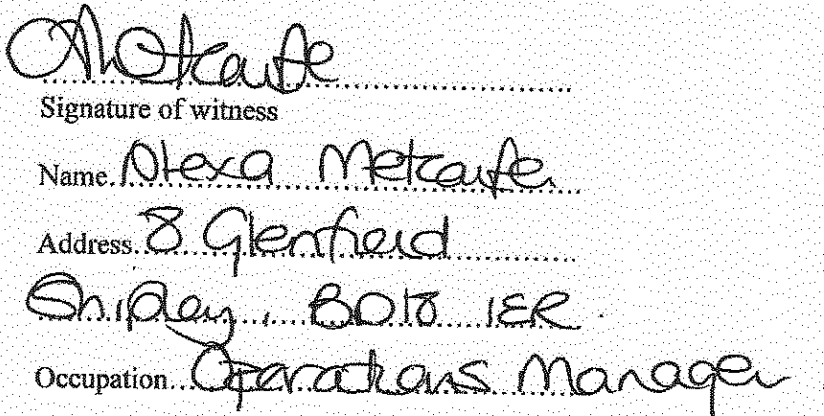 AMetcalfe
Signature of witness
Name Alexa Metcalfe
Address 8 Glenfield
Shipley, BD18 1ER
Occupation Operations Manager